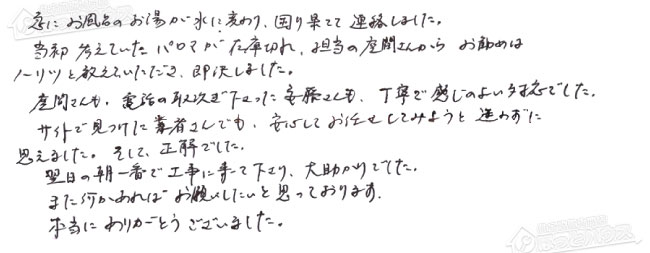 急に お風呂のお湯が水に変わり、困り果てて連絡しました。
当初 考えていたパロマが在庫切れ、担当の座間さんから お勧めは
ノーリツと教えていただき、即決しました。
座間さんも、電話の取次ぎ下さった安藤さんも、丁寧で感じのよい対応でした。
サイトで見つけた業者さんでも、安心してお任せしてみようと迷わずに
思えました。そして、正解でした。
翌日の朝一番で工事に来て下さり、大助かりでした。
また何かあれば お願いしたいと思っております。
本当に ありがとうございました。